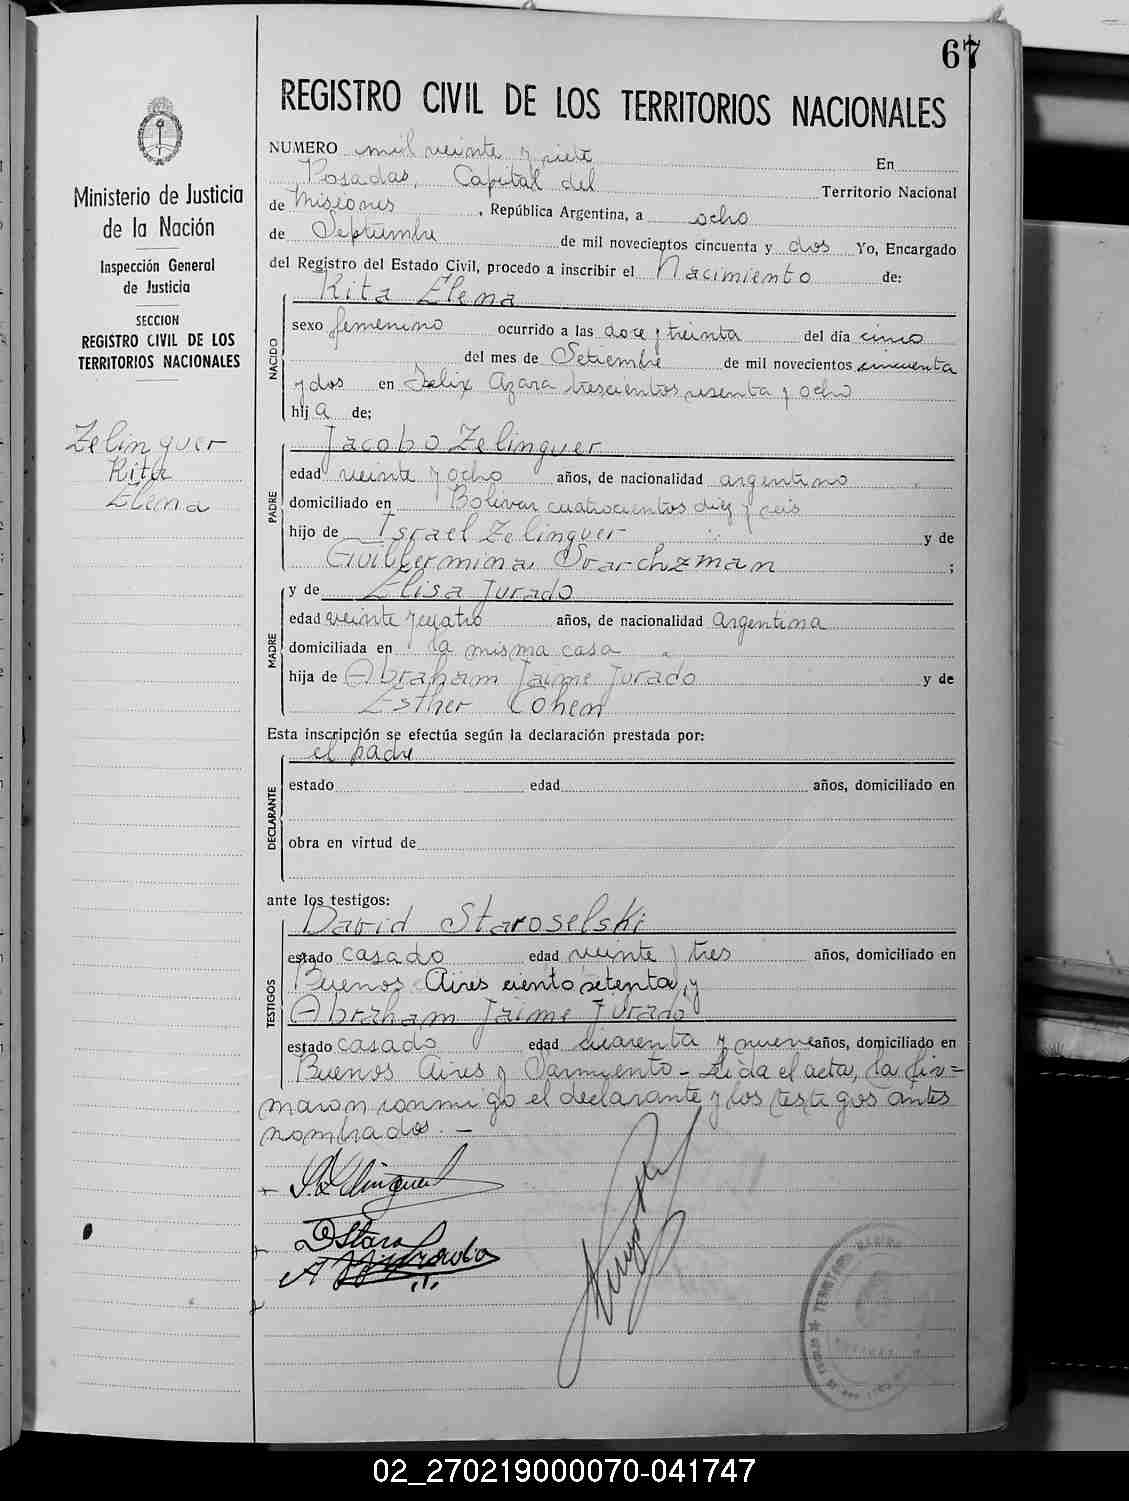 67
REGISTRO CIVIL DE LOS TERRITORIOS NACIONALES
Ministerio de Justicia
de la Nación
Inspección General
de Justicia
SECCION
REGISTRO CIVIL DE LOS
TERRITORIOS NACIONALES
Zelinguer
Rita
Elena
NUMERO mil veinte y siete En
Posadas, Capital del Territorio Nacional
de Misiones, República Argentina, a ocho
de Septiembre de mil novecientos cincuenta y dos Yo, Encargado
del Registro del Estado Civil, procedo a inscribir el Nacimiento de:
NACIDO
Rita Elena
sexo femenino ocurrido a las doce y treinta del día cinco
del mes de Setiembre de mil novecientos cincuenta
y dos en Felix Azara trescientos sesenta y ocho
hija de;
PADRE
Jacobo Zelinguer
edad veinte y ocho años, de nacionalidad argentino
domiciliado en Bolivar cuatrocientos diez y seis
hijo de Israel Zelinguer y de
Guillermina Svarchzman ;
MADRE
y de Elisa Jurado
edad veinte y cuatro años, de nacionalidad argentina
domiciliada en la misma casa
hija de Abraham Jaime Jurado y de
Esther Cohen
Esta inscripción se efectúa según la declaración prestada por:
el padre
DECLARANTE
estado edad años, domiciliado en
obra en virtud de
ante los testigos:
TESTIGOS
David Staroselski
estado casado edad veinte y tres años, domiciliado en
Buenos Aires ciento setenta, y
Abraham Jaime Jurado
estado casado edad cuarenta y nueve años, domiciliado en
Buenos Aires y Sarmiento - Leida el acta, la fir=
maron conmigo el declarante y los testigos antes
nombrados. -
02_270219000070-041747